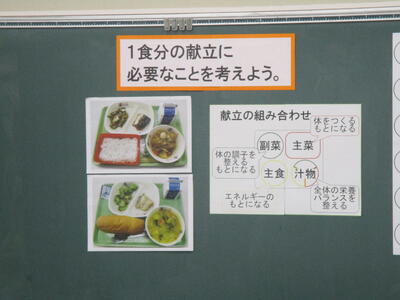 1食分の献立に
必要なことを考えよう。
献立の組み合わせ
体をつくる
もとになる
副菜
主菜
体の調子を
整える
もとになる
主食
汁物
エネルギーの
もとになる
全体の栄養
バランスを
整える